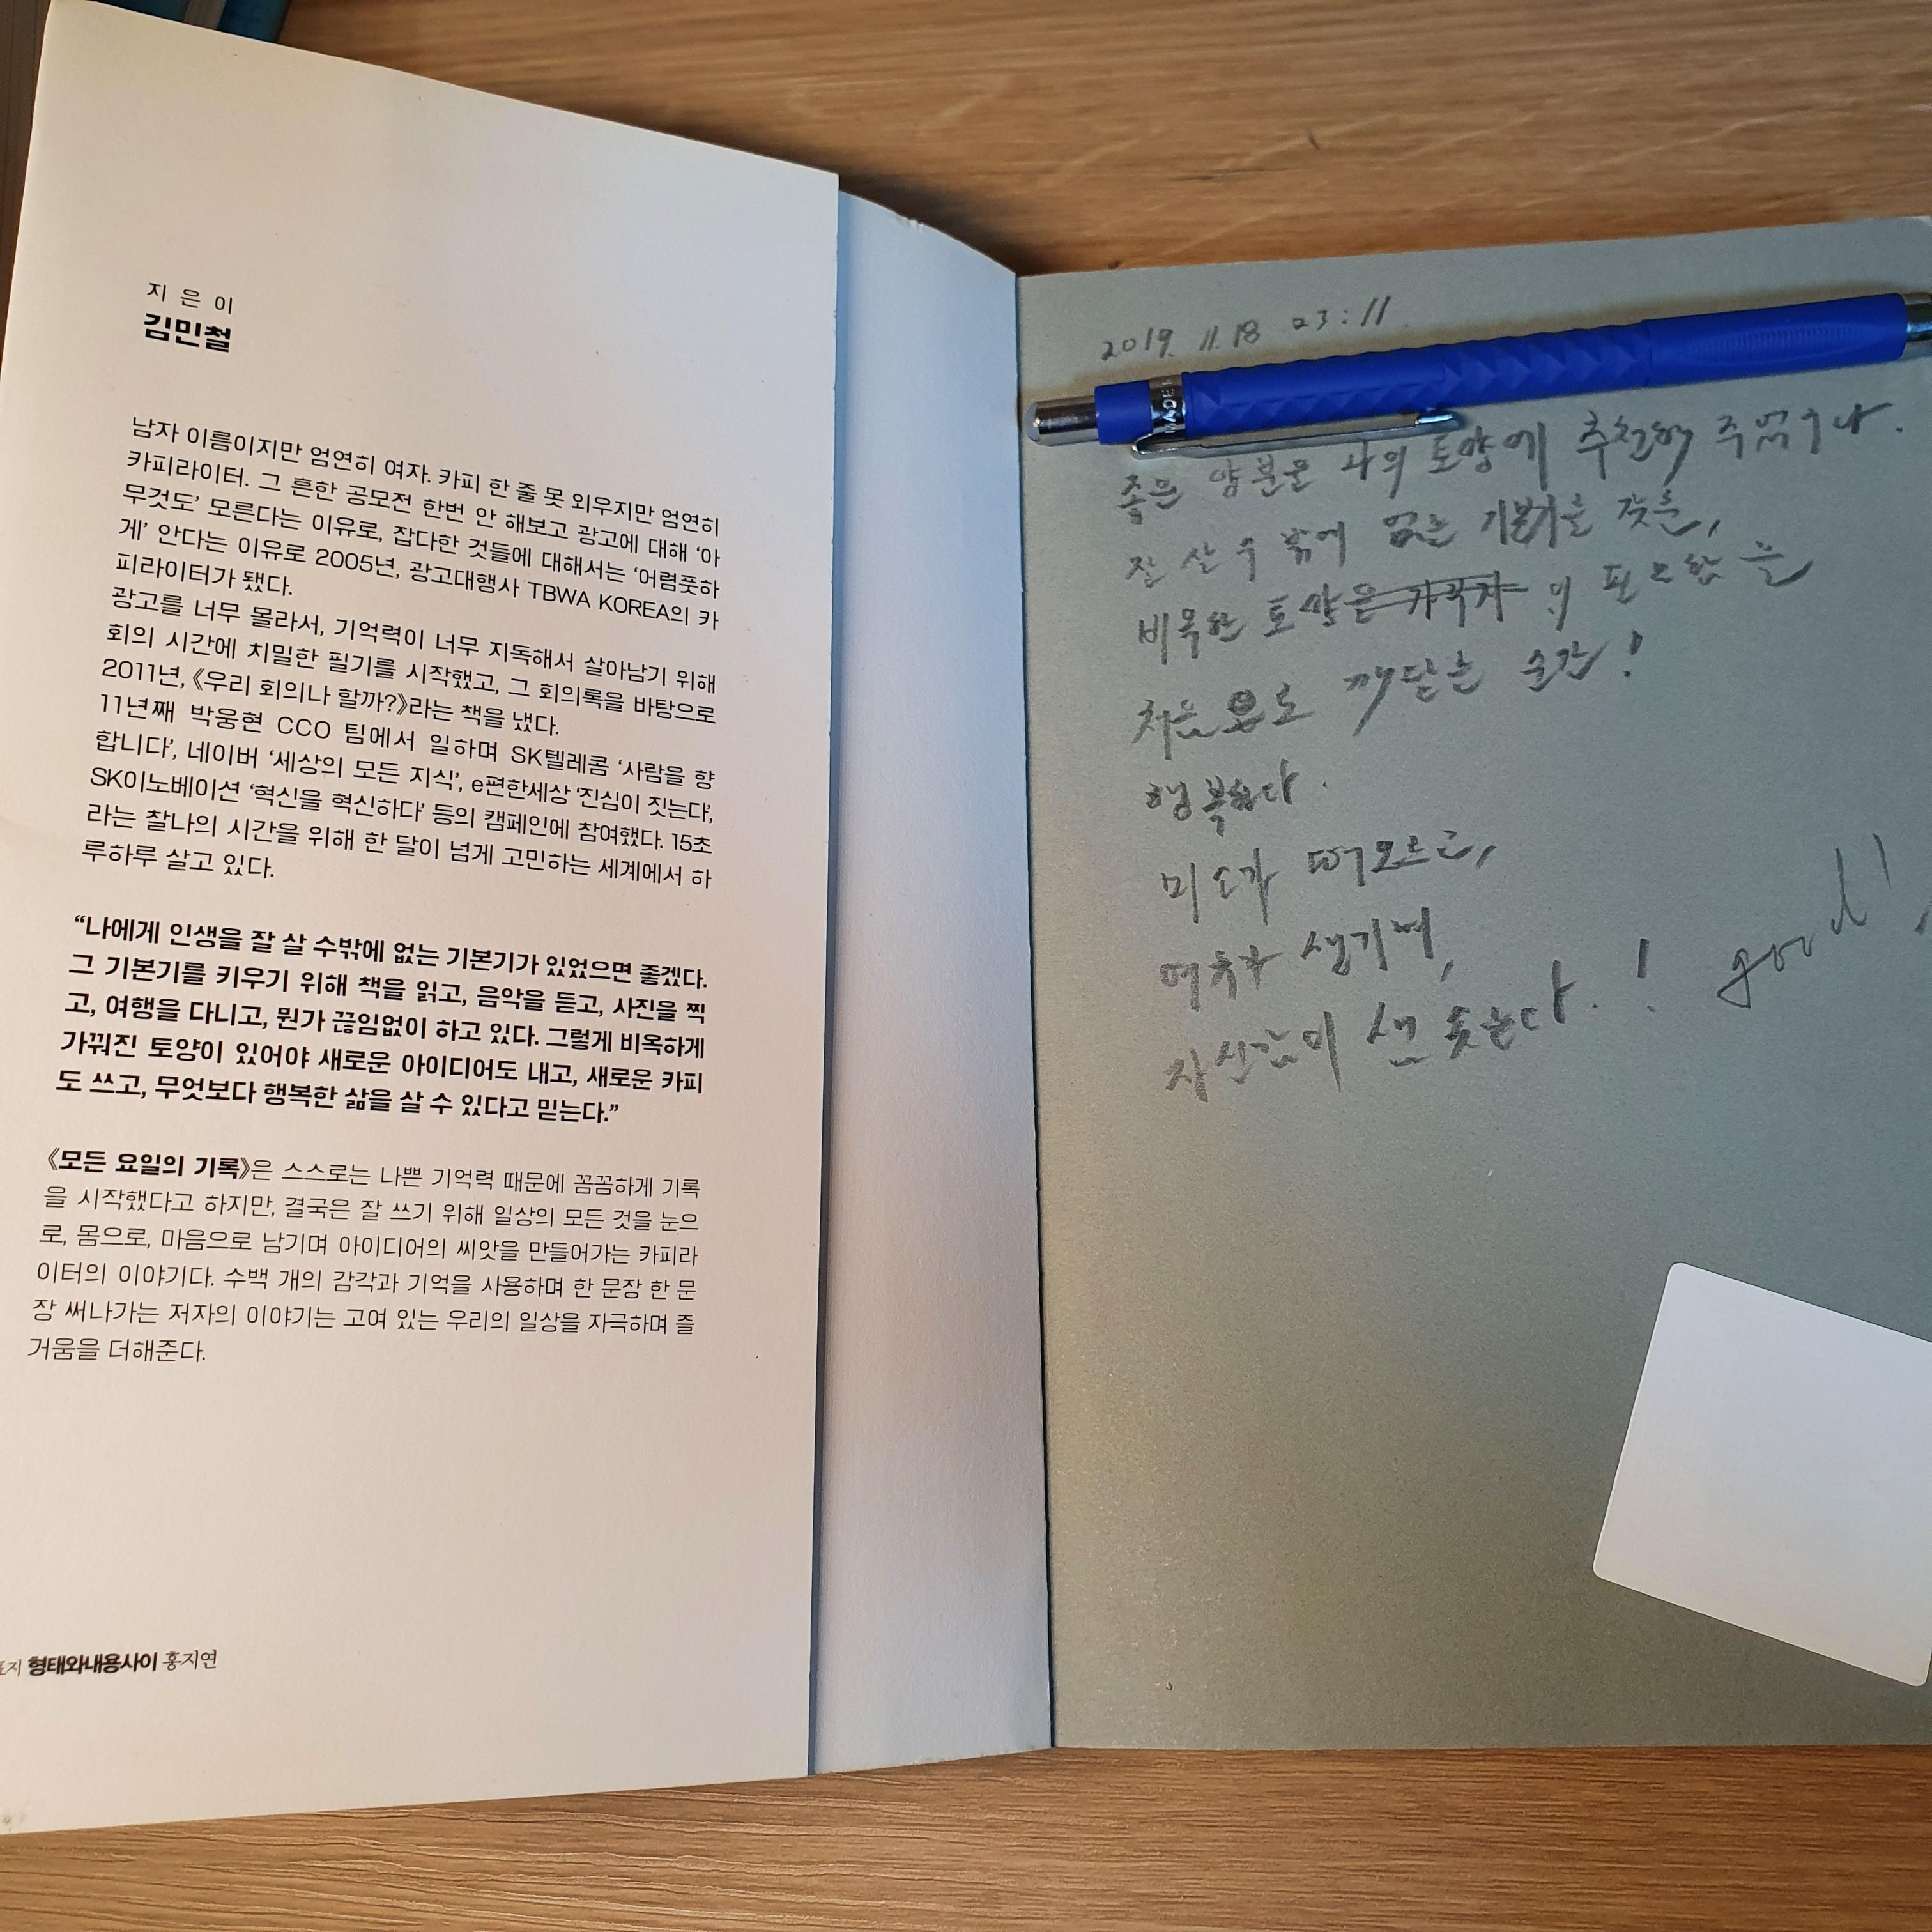 지은이
김민철
남자 이름이지만 엄연히 여자. 카피 한 줄 못 외우지만 엄연히
카피라이터. 그 흔한 공모전 한번 안 해보고 광고에 대해 ‘아
무것도’ 모른다는 이유로, 잡다한 것들에 대해서는 ‘어렴풋하
게’ 안다는 이유로 2005년, 광고대행사 TBWA KOREA의 카
피라이터가 됐다.
광고를 너무 몰라서, 기억력이 너무 지독해서 살아남기 위해
회의 시간에 치밀한 필기를 시작했고, 그 회의록을 바탕으로
2011년, 《우리 회의나 할까?》라는 책을 냈다.
11년째 박웅현 CCO 팀에서 일하며 SK텔레콤 ‘사람을 향
합니다’, 네이버 ‘세상의 모든 지식’, e편한세상 ‘진심이 짓는다’,
SK이노베이션 ‘혁신을 혁신하다’ 등의 캠페인에 참여했다. 15초
라는 찰나의 시간을 위해 한 달이 넘게 고민하는 세계에서 하
루하루 살고 있다.
“나에게 인생을 잘 살 수밖에 없는 기본기가 있었으면 좋겠다.
그 기본기를 키우기 위해 책을 읽고, 음악을 듣고, 사진을 찍
고, 여행을 다니고, 뭔가 끊임없이 하고 있다. 그렇게 비옥하게
가꿔진 토양이 있어야 새로운 아이디어도 내고, 새로운 카피
도 쓰고, 무엇보다 행복한 삶을 살 수 있다고 믿는다.”
《모든 요일의 기록》은 스스로는 나쁜 기억력 때문에 꼼꼼하게 기록
을 시작했다고 하지만, 결국은 잘 쓰기 위해 일상의 모든 것을 눈으
로, 몸으로, 마음으로 남기며 아이디어의 씨앗을 만들어가는 카피라
이터의 이야기다. 수백 개의 감각과 기억을 사용하며 한 문장 한 문
장 써나가는 저자의 이야기는 고여 있는 우리의 일상을 자극하며 즐
거움을 더해준다.
표지 형태와내용사이 홍지연
2019. 11. 18 23:11.
MADE
좋은 양분을 나의 토양에 추천해 주었구나.
잘 살 수 밖에 없는 기본기를 갖춘,
비옥한 토양의 필요함을
처음으로 깨닫는 순간!
행복하다.
미소가 떠오르고,
여유가 생기며,
자신감이 샘 솟는다.! good!